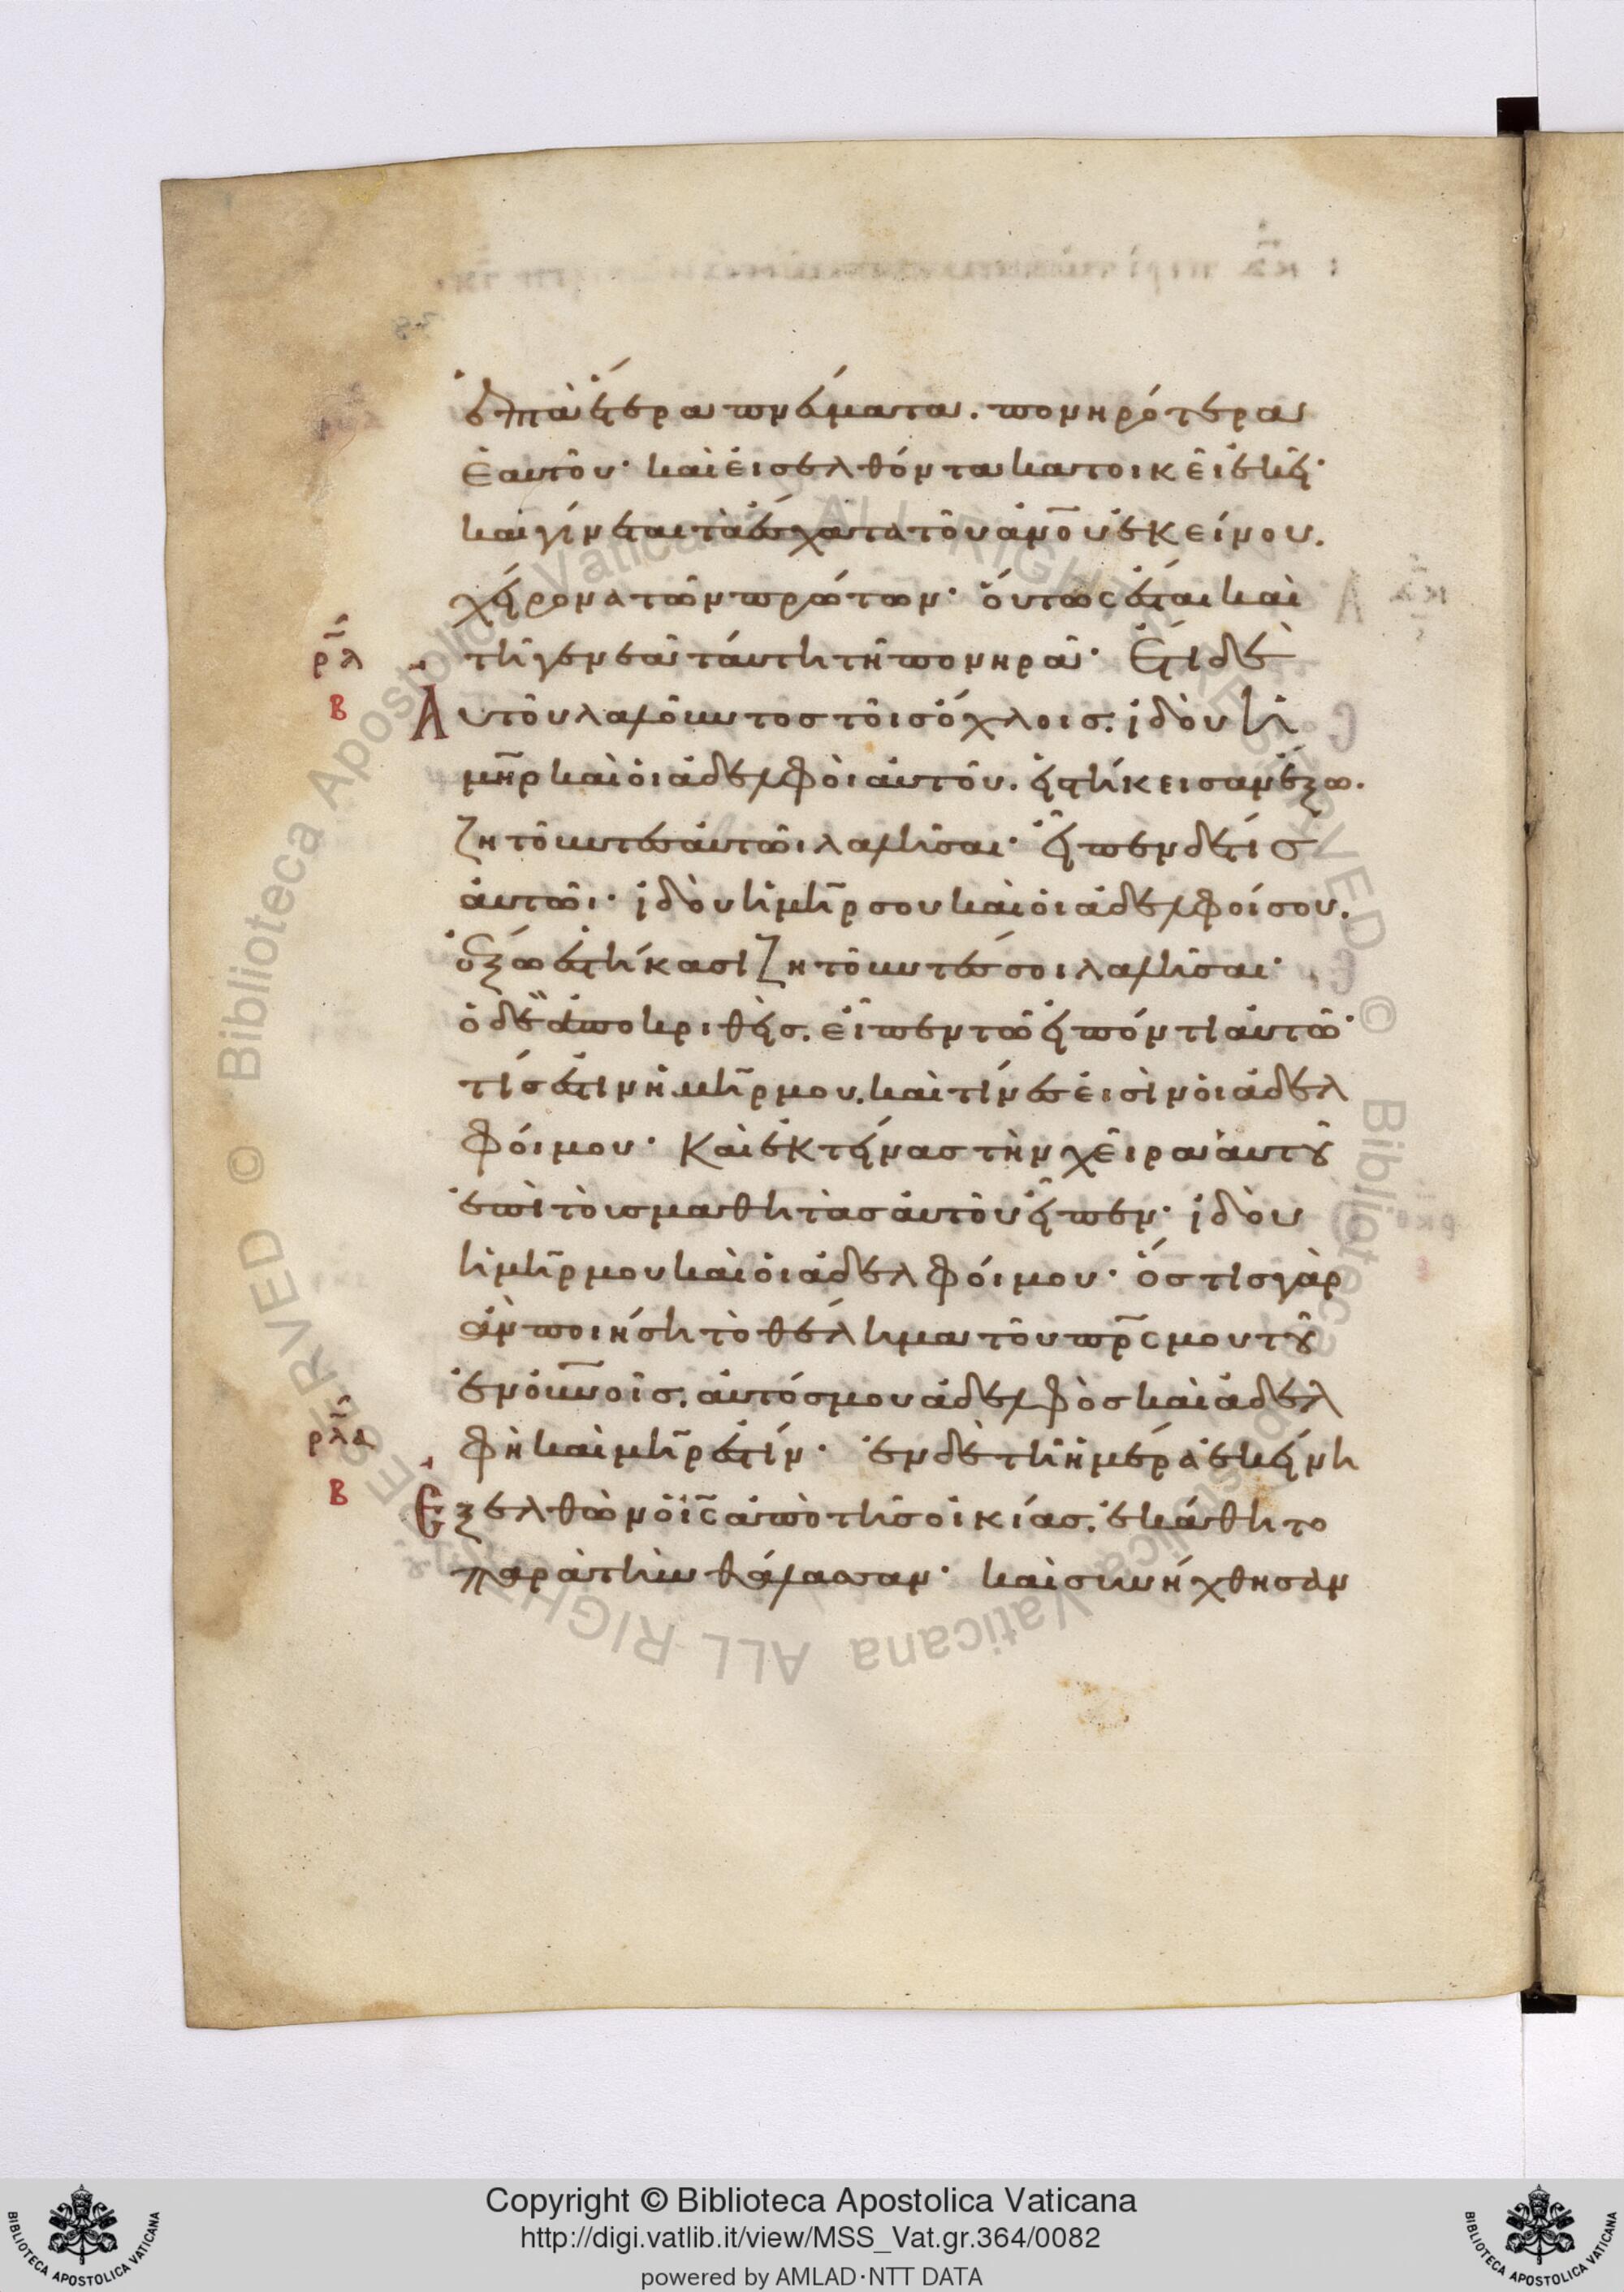 ἑπτὰ ἕτερα πνεύματα. πονηρότερα
ἑαυτοῦ· καὶ εἰσελθόντα κατοικεῖ ἐκεῖ·
καὶ γίνεται τὰ ἔσχατα τοῦ ἀν̅ο̅υ̅ ἐκείνου.
χείρονα τῶν πρώτων· οὕτως ἔσται καὶ
ρλ τῆ γενεᾶ ταύτη τῆ πονηρᾶ· Ἔτι δὲ
β Αὐτοῦ λαλοῦντος τοῖς ὄχλοις. ἰδοὺ ἡ
μ̅η̅ρ̅ καὶ οἱ ἀδελφοὶ αὐτοῦ. εἱστήκεισαν ἔξω.
ζητοῦντες αὐτῶι λαλῆσαι· εἶπεν δέ τις
αὐτῶι· ἰδοὺ ἡ μ̅η̅ρ̅ σου καὶ οἱ ἀδελφοί σου.
ἔξω ἑστήκασι ζητοῦντές σοι λαλῆσαι·
ὁ δὲ ἀποκριθεὶς. εἶπεν τῶ εἰπόντι αὐτῶ·
τίς ἐστιν ἡ μ̅η̅ρ̅ μου. καὶ τίνες εἰσὶν οἱ ἀδελ
φοί μου· Καὶ ἐκτείνας τὴν χεῖρα αὐτοῦ
ἐπὶ τοὺς μαθητὰς αὐτοῦ εἶπεν· ἰδοὺ
ἡ μ̅η̅ρ̅ μου καὶ οἱ ἀδελφοί μου· ὅστις γὰρ
ἂν ποιήση τὸ θέλημα τοῦ π̅ρ̅ς̅ μου τοῦ
ἐν ο̅υ̅ν̅ο̅ι̅ς̅. αὐτός μου ἀδελφὸς καὶ ἀδελ
ρλα φὴ καὶ μ̅η̅ρ̅ ἐστίν· ἐν δὲ τῆ ἡμέρα ἐκείνη
β Ἐξελθὼν ὁ ι̅ς̅ ἀπὸ τῆς οἰκίας. ἐκάθητο
παρὰ τὴν θάλασσαν· καὶ συνήχθησαν
Copyright © Biblioteca Apostolica Vaticana
http://digi.vatlib.it/view/MSS_Vat.gr.364/0082
powered by AMLAD·NTT DATA
BIBLIOTECA APOSTOLICA VATICANA
BIBLIOTECA APOSTOLICA VATICANA
© Biblioteca Apostolica Vaticana ALL RIGHTS RESERVED © Biblioteca Apostolica Vaticana ALL RIGHTS RESERVED